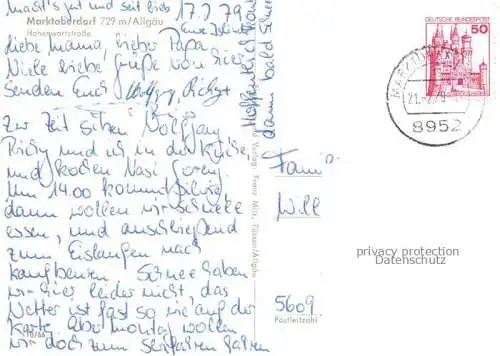 macht's gut und seid lieb 17.2.79
Marktoberdorf 729 m/Allgäu
Hohenwartstraße
Liebe Mama, lieber Papa
Viele liebe Grüße von hier
senden Euch Wolfgang, Ricky +
Zur Zeit sitzen Wolfgang
Ricky und ich in der Küche
und kochen Nasi Goreng.
Um 14.00 kommt
dann wollen wir schnell
essen, und anschließend
zum Eislaufen nach
Kaufbeuren. Schnee haben
wir hier leider nicht, das
Wetter ist fast so wie auf der
Karte. Aber Montag wollen
wir doch zum Skifahren fahren
Hoffentlich
dann bald
Verlag Franz Milz, Füssen/Allgäu
DEUTSCHE BUNDESPOST
50
8952
Fam
Will
privacy protection
Datenschutz
5609
Postleitzahl